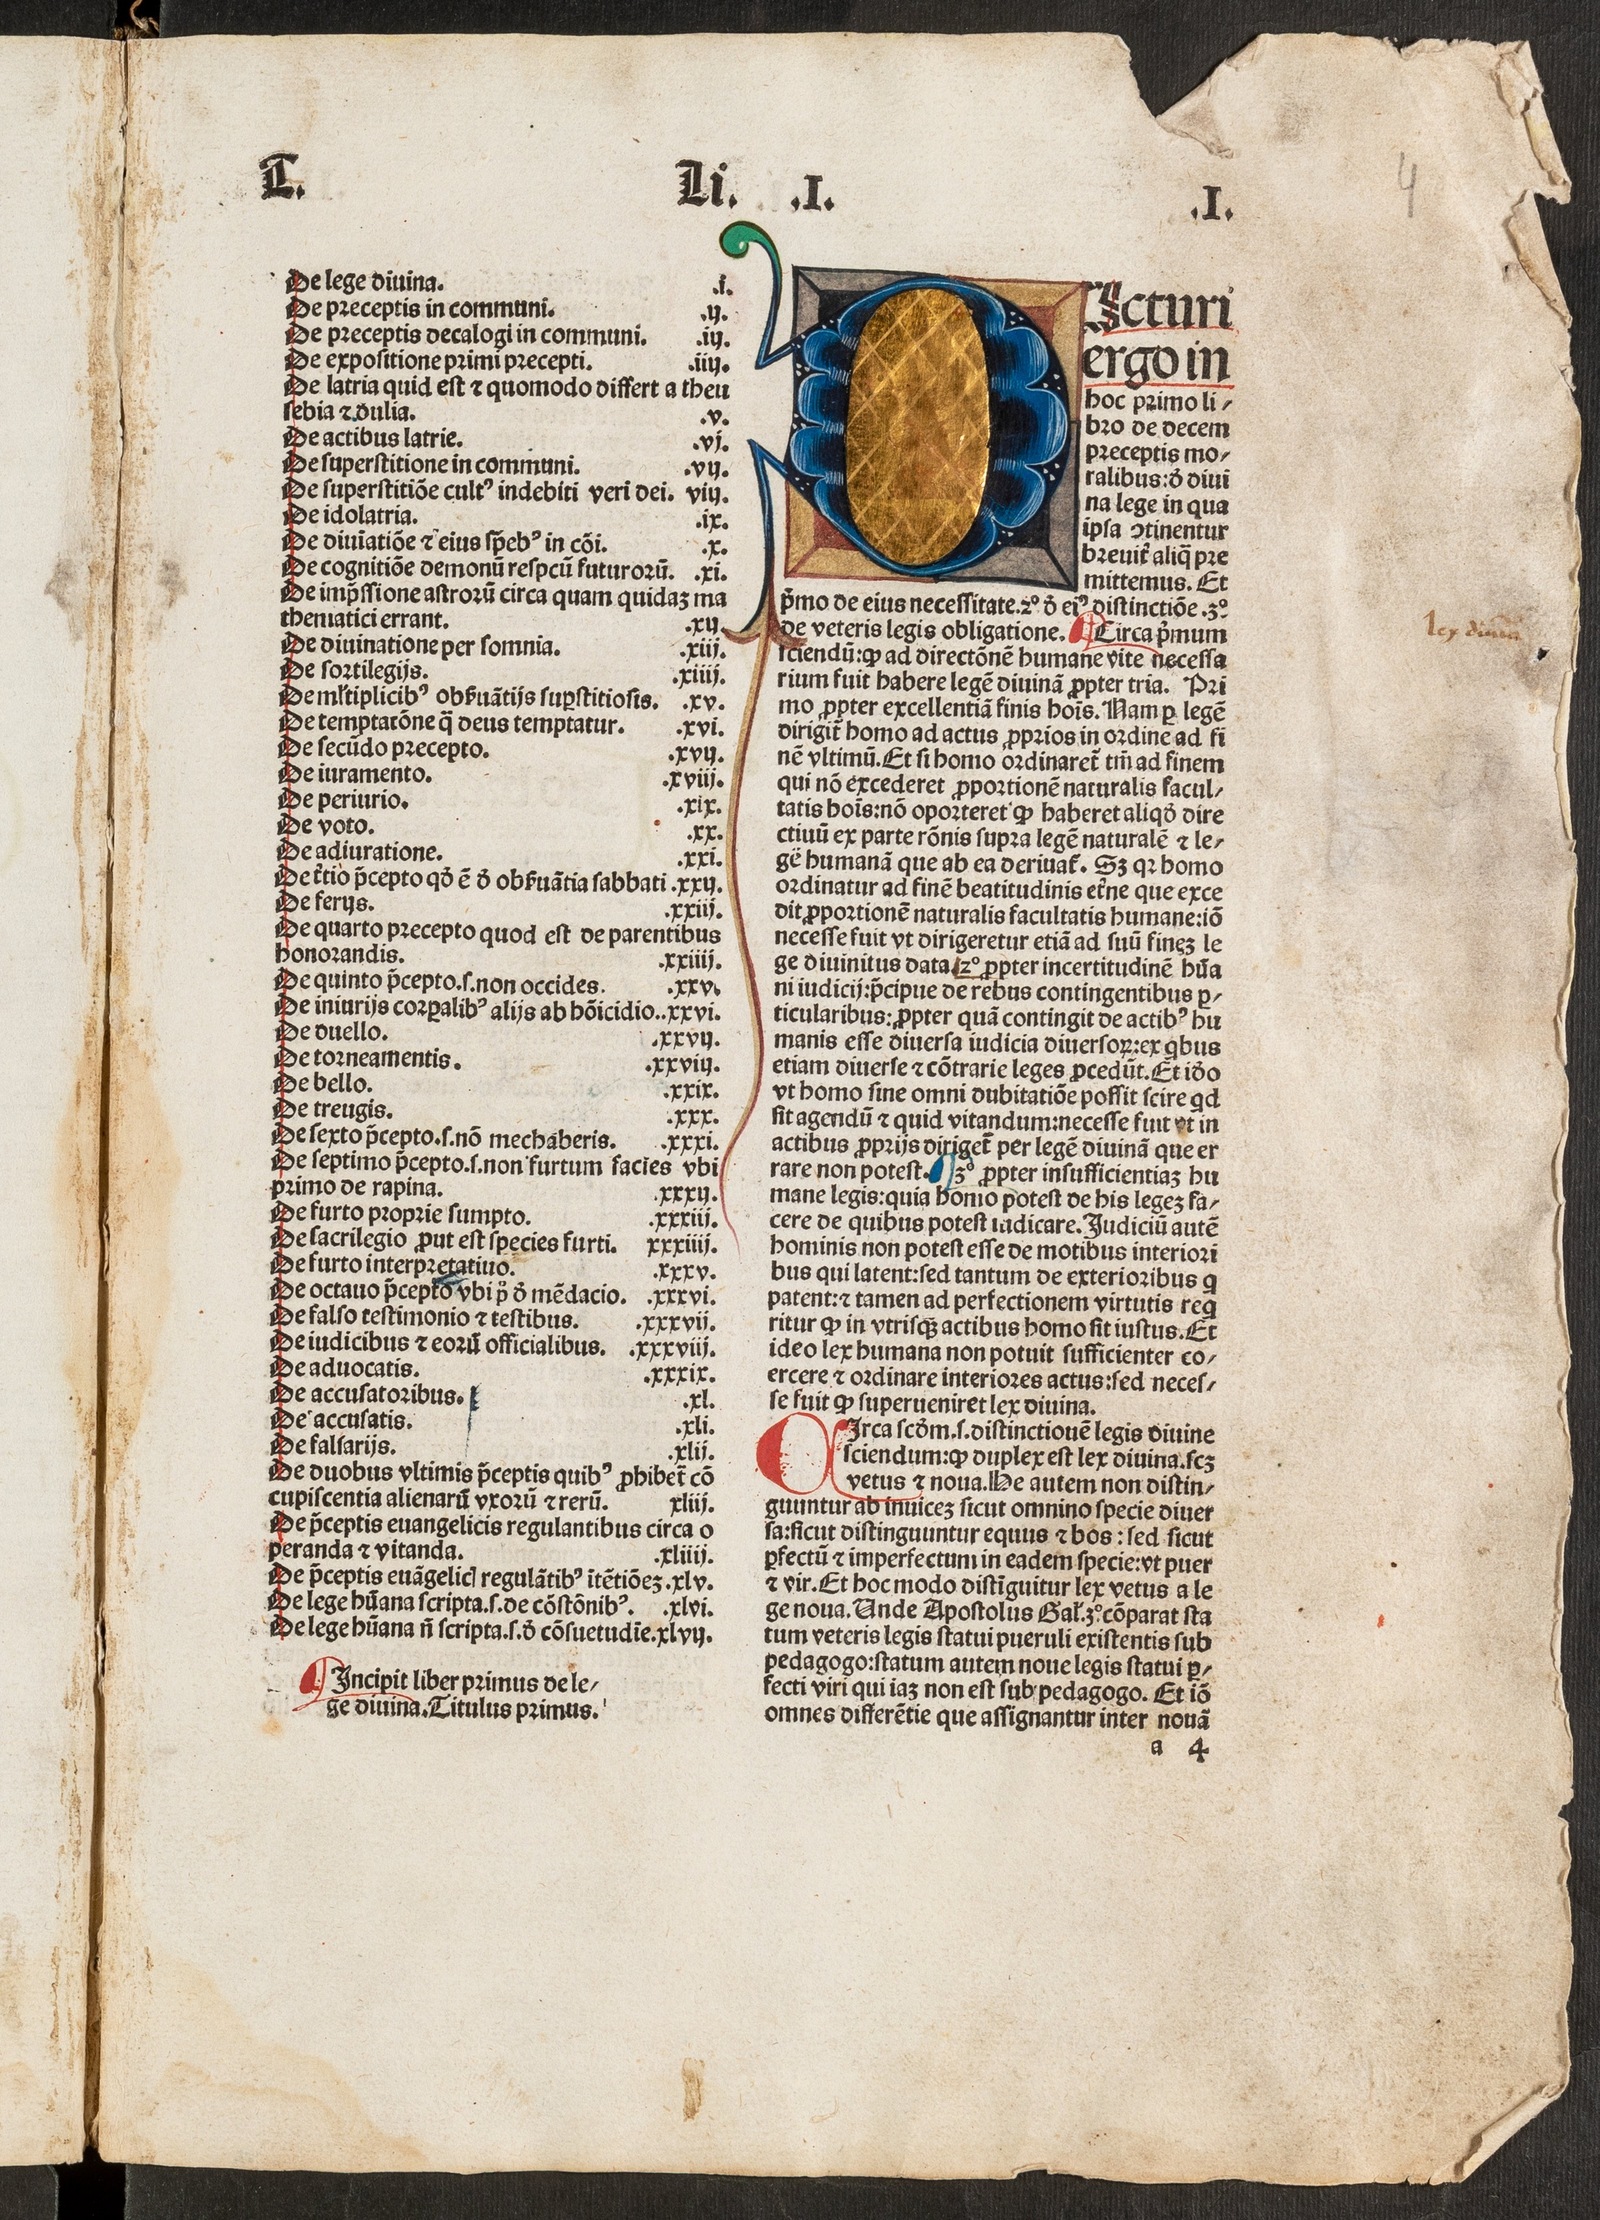 T. Li. .I. .I.
De lege diuina. .i.
De preceptis in communi. .ij.
De preceptis decalogi in communi. .iij.
De expositione primi precepti. .iiij.
De latria quid est ⁊ quomodo differt a theu
sebia ⁊ dulia. .v.
De actibus latrie. .vj.
De superstitione in communi. .vij.
De superstitiõe cultꝰ indebiti veri dei. viij.
De idolatria. .ix.
De diuīatiõe ⁊ eius sp̃ebꝰ in cõi. .x.
De cognitiõe demonũ respcũ futurorũ. .xi.
De imp̃ssione astrorũ circa quam quidaʒ ma
thematici errant. .xij.
De diuinatione per somnia. .xiij.
De sortilegijs. .xiiij.
De ml̃tiplicibꝰ obẜuãtijs suꝑstitiosis. .xv.
De temptatõne q̃ deus temptatur. .xvi.
De secũdo precepto. .xvij.
De iuramento. .xviij.
De periurio. .xix.
De voto. .xx.
De adiuratione. .xxi.
De t̃tio p̃cepto qð ẽ ð obẜuãtia sabbati .xxij.
De ferijs. .xxiij.
De quarto precepto quod est de parentibus
honorandis. .xxiiij.
De quinto p̃cepto.s.non occides. .xxv.
De iniurijs corꝑalibꝰ alijs ab hõicidio..xxvi.
De duello. .xxvij.
De torneamentis. .xxviij.
De bello. .xxix.
De treugis. .xxx.
De sexto p̃cepto.s.nõ mechaberis. .xxxi.
De septimo p̃cepto.s.non furtum facies vbi
primo de rapina. .xxxij.
De furto proprie sumpto. .xxxiij.
De sacrilegio ꝓut est species furti. xxxiiij.
De furto interpretatiuo. .xxxv.
De octauo p̃cepto vbi p̊ ð mẽdacio. .xxxvi.
De falso testimonio ⁊ testibus. .xxxvij.
De iudicibus ⁊ eorũ officialibus. .xxxviij.
De aduocatis. .xxxix.
De accusatoribus. .xl.
De accusatis. .xli.
De falsarijs. .xlij.
De duobus vltimis p̃ceptis quibꝰ ꝓhibet̃ cõ
cupiscentia alienarũ vxorũ ⁊ rerũ. xliij.
De p̃ceptis euangelicis regulantibus circa o
peranda ⁊ vitanda. .xliiij.
De p̃ceptis euãgelicꝭ regulãtibꝰ ĩtẽtiõeʒ .xlv.
De lege hũana scripta.s.de cõstõnibꝰ. .xlvi.
De lege hũana ñ scripta.s.ð cõsuetudĩe.xlvij.
Incipit liber primus de le-
ge diuina.Titulus primus.
Dicturi
ergo in
hoc primo li-
bro de decem
preceptis mo-
ralibus:ð diui
na lege in qua
ipsa ꝯtinentur
breuit̃ aliq̃ pre
mittemus. Et
p̃mo de eius necessitate.2º ð eiꝰ distinctiõe .3º
de veteris legis obligatione. Circa p̃mum
sciendũ:ꝙ ad directõnẽ humane vite necessa
rium fuit habere legẽ diuinã ꝓpter tria. Pri
mo ꝓpter excellentiã finis hoĩs. Nam ꝑ legẽ
dirigit̃ homo ad actus ꝓprios in ordine ad fi
nẽ vltimũ.Et si homo ordinaret̃ tm̃ ad finem
qui nõ excederet ꝓportionẽ naturalis facul-
tatis hoĩs:nõ oporteret ꝙ haberet aliqð dire
ctiuũ ex parte rõnis supra legẽ naturalẽ ⁊ le-
gẽ humanã que ab ea deriuat̃. Sʒ qꝛ homo
ordinatur ad finẽ beatitudinis et̃ne que exce
dit ꝓportionẽ naturalis facultatis humane:iõ
necesse fuit vt dirigeretur etiã ad suũ fineʒ le
ge diuinitus data.2º ꝓpter incertitudinẽ hũa
ni iudicij:p̃cipue de rebus contingentibus ꝑ-
ticularibus:ꝓpter quã contingit de actibꝰ hu
manis esse diuersa iudicia diuersoꝝ:ex q̃bus
etiam diuerse ⁊ cõtrarie leges ꝓcedũt.Et iðo
vt homo sine omni dubitatiõe possit scire qd
sit agendũ ⁊ quid vitandum:necesse fuit vt in
actibus ꝓprijs diriget̃ per legẽ diuinã que er
rare non potest. 3º ꝓpter insufficientiaʒ hu
mane legis:quia homo potest de his legeʒ fa-
cere de quibus potest iudicare.Judiciũ autẽ
hominis non potest esse de motibus interiori
bus qui latent:sed tantum de exterioribus q
patent:⁊ tamen ad perfectionem virtutis req
ritur ꝙ in vtrisqʒ actibus homo sit iustus.Et
ideo lex humana non potuit sufficienter co-
ercere ⁊ ordinare interiores actus:sed neces-
se fuit ꝙ superueniret lex diuina.
CIrca scðm.s.distinctionẽ legis diuine
sciendum:ꝙ duplex est lex diuina.scʒ
vetus ⁊ noua.He autem non distin-
guuntur ab inuiceʒ sicut omnino specie diuer
sa:sicut distinguuntur equus ⁊ bos : sed sicut
ꝑfectũ ⁊ imperfectum in eadem specie:vt puer
⁊ vir.Et hoc modo distĩguitur lex vetus a le
ge noua.Unde Apostolus Gal̃.3º.cõparat sta
tum veteris legis statui pueruli existentis sub
pedagogo:statum autem noue legis statui ꝑ-
fecti viri qui iaʒ non est sub pedagogo. Et iõ
omnes differẽtie que assignantur inter nouã
a 4
4
lex diuina